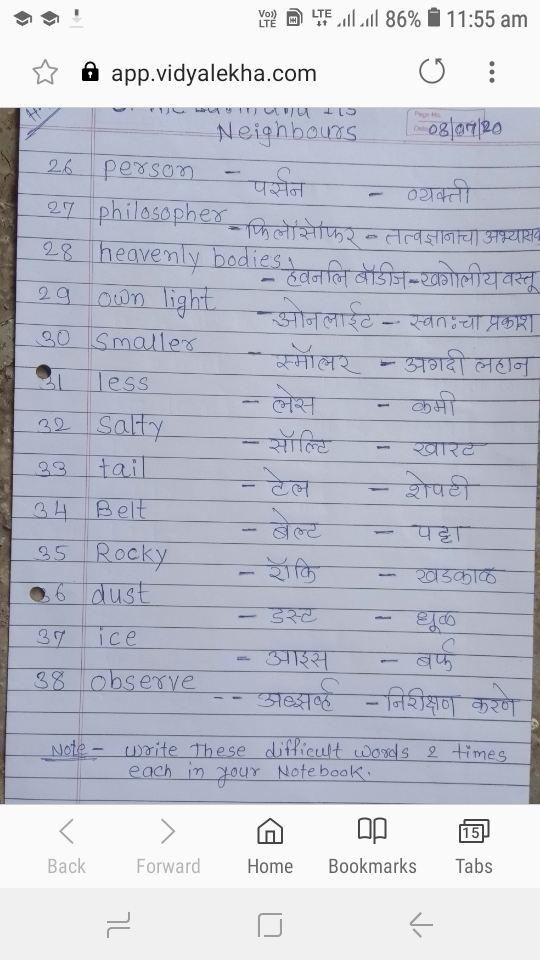 Vo)) LTE LTE 86% 11:55 am
app.vidyalekha.com
Its
Neighbours
Page No.
Date 08/07/20
26 person - पर्सन - व्यक्ती
27 philosopher - फिलॉसॉफर - तत्वज्ञानाचा अभ्यासक
28 heavenly bodies - हेवनलि बॉडीज - खगोलीय वस्तू
29 own light - ओनलाईट - स्वतःचा प्रकाश
30 smaller - स्मॉलर - अगदी लहान
31 less - लेस - कमी
32 Salty - सॉल्टि - खारट
33 tail - टेल - शेपटी
34 Belt - बेल्ट - पट्टा
35 Rocky - रॉकि - खडकाळ
36 dust - डस्ट - धूळ
37 ice - आइस - बर्फ
38 observe -- अब्झर्व्ह - निरीक्षण करणे
Note - write These difficult words 2 times
each in your Notebook.
Back Forward Home Bookmarks 15 Tabs